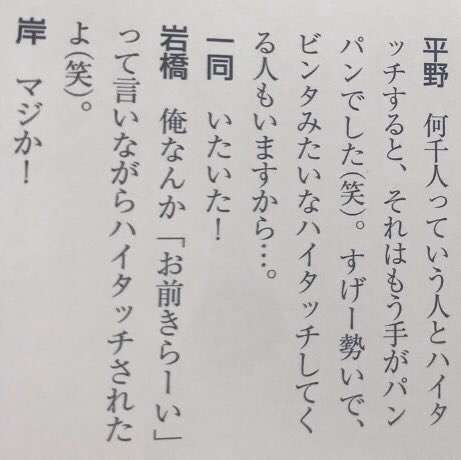 平野　何千人っていう人とハイタ
ッチすると、それはもう手がパン
パンでした(笑)。すげー勢いで、
ビンタみたいなハイタッチしてく
る人もいますから…。
一同　いたいた！
岩橋　俺なんか「お前きらーい」
って言いながらハイタッチされた
よ(笑)。
岸　マジか！